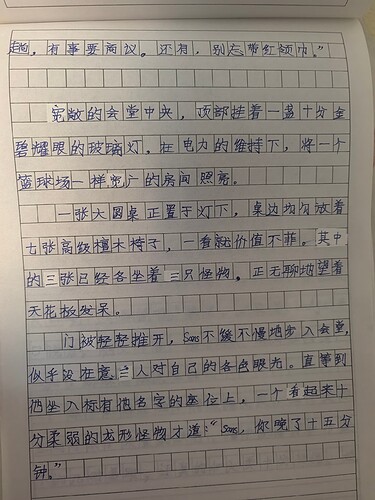 趟，有事要商议。还有，别忘带红领巾。”
宽敞的会堂中央，顶部挂着一盏十分金
碧耀眼的玻璃灯，在电力的维持下，将一个
篮球场一样宽广的房间照亮。
一张大圆桌正置于灯下，桌边均匀放着
七张高级檀木椅子，一看就价值不菲。其中
的三张已经各坐着三只怪物。正无聊地望着
天花板发呆。
门被轻轻推开，Sans不缓不慢地步入会堂，
似乎没在意三人对自己的各色眼光。直等到
他坐入标有他名字的座位上，一个看起来十
分柔弱的龙形怪物才道：“Sans，你晚了十五分
钟。”